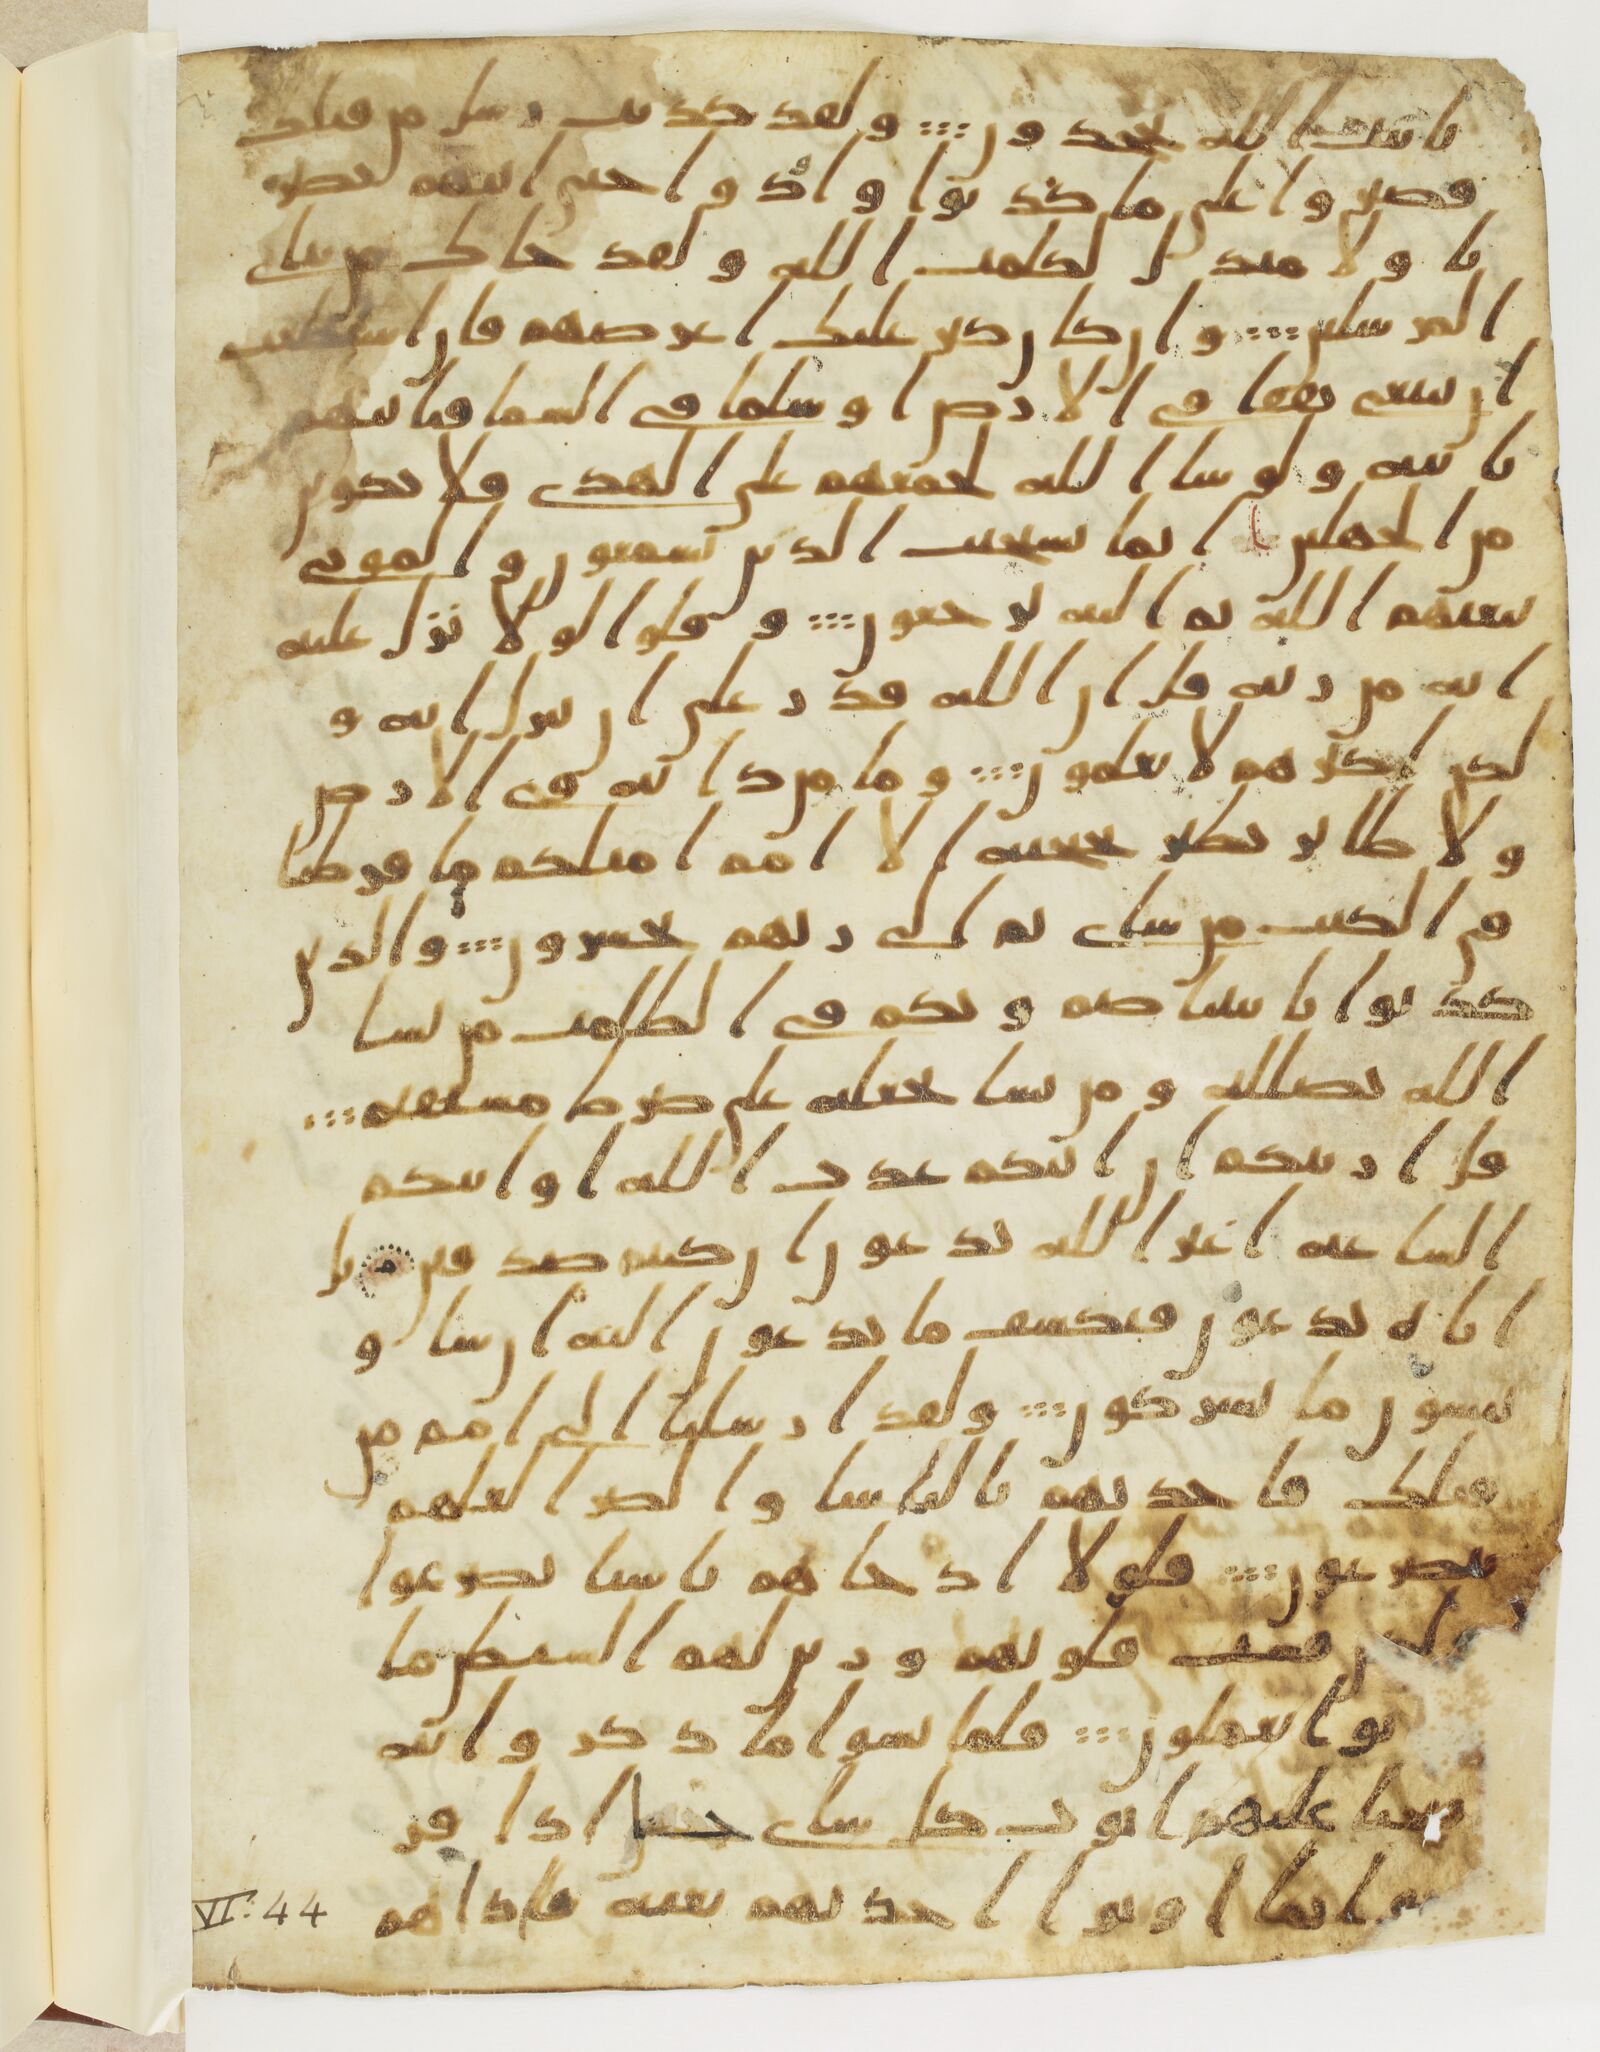 بايت الله يجحدون ؞ ولقد كذبت رسل من قبلك
فصبروا على ما كذبوا واوذوا حتى اتيهم نصر
نا ولا مبدل لكلمت الله ولقد جاك من نباى
المرسلين ؞ وان كان كبر عليك اعرضهم فان استطعت
ان تبتغى نفقا فى الارض او سلما فى السما فتاتيهم
بايه ولو شا الله لجمعهم على الهدى فلا تكونن
من الجهلين انما يستجيب الذين يسمعون والموتى
يبعثهم الله ثم اليه يرجعون ؞ وقلوا لولا نزل عليه
ايه من ربه قل ان الله قدر على ان ينزل ايه و
لكن اكثرهم لا يعلمون ؞ وما من دابه فى الارض
ولا طاير يطير بجنحيه الا امم امثلكم ما فرطنا
فى الكتب من شاى ثم الى ربهم يحشرون ؞ والذين
كذبوا بايتنا صم وبكم فى الظلمت من يشا
الله يضلله ومن يشا يجعله على صرط مستقيم ؞
قل اريتكم ان اتيكم عذب الله او اتتكم
الساعه اغير الله تدعون ان كنتم صدقين بل
اياه تدعون فيكشف ما تدعون اليه ان شا و
تنسون ما تشركون ؞ ولقد ارسلنا الى امم من
قبلك فاخذنهم بالباسا والضرا لعلهم
يتضرعون ؞ فلولا اذ جاهم باسنا تضرعوا
ولكن قست قلوبهم وزين لهم الشيطن ما
نوا يعملون ؞ فلما نسوا ما ذكروا به
فتحنا عليهم ابوب كل شاى حتى اذا فر
حوا بما اوتوا اخذنهم بغته فاذا هم
VI: 44